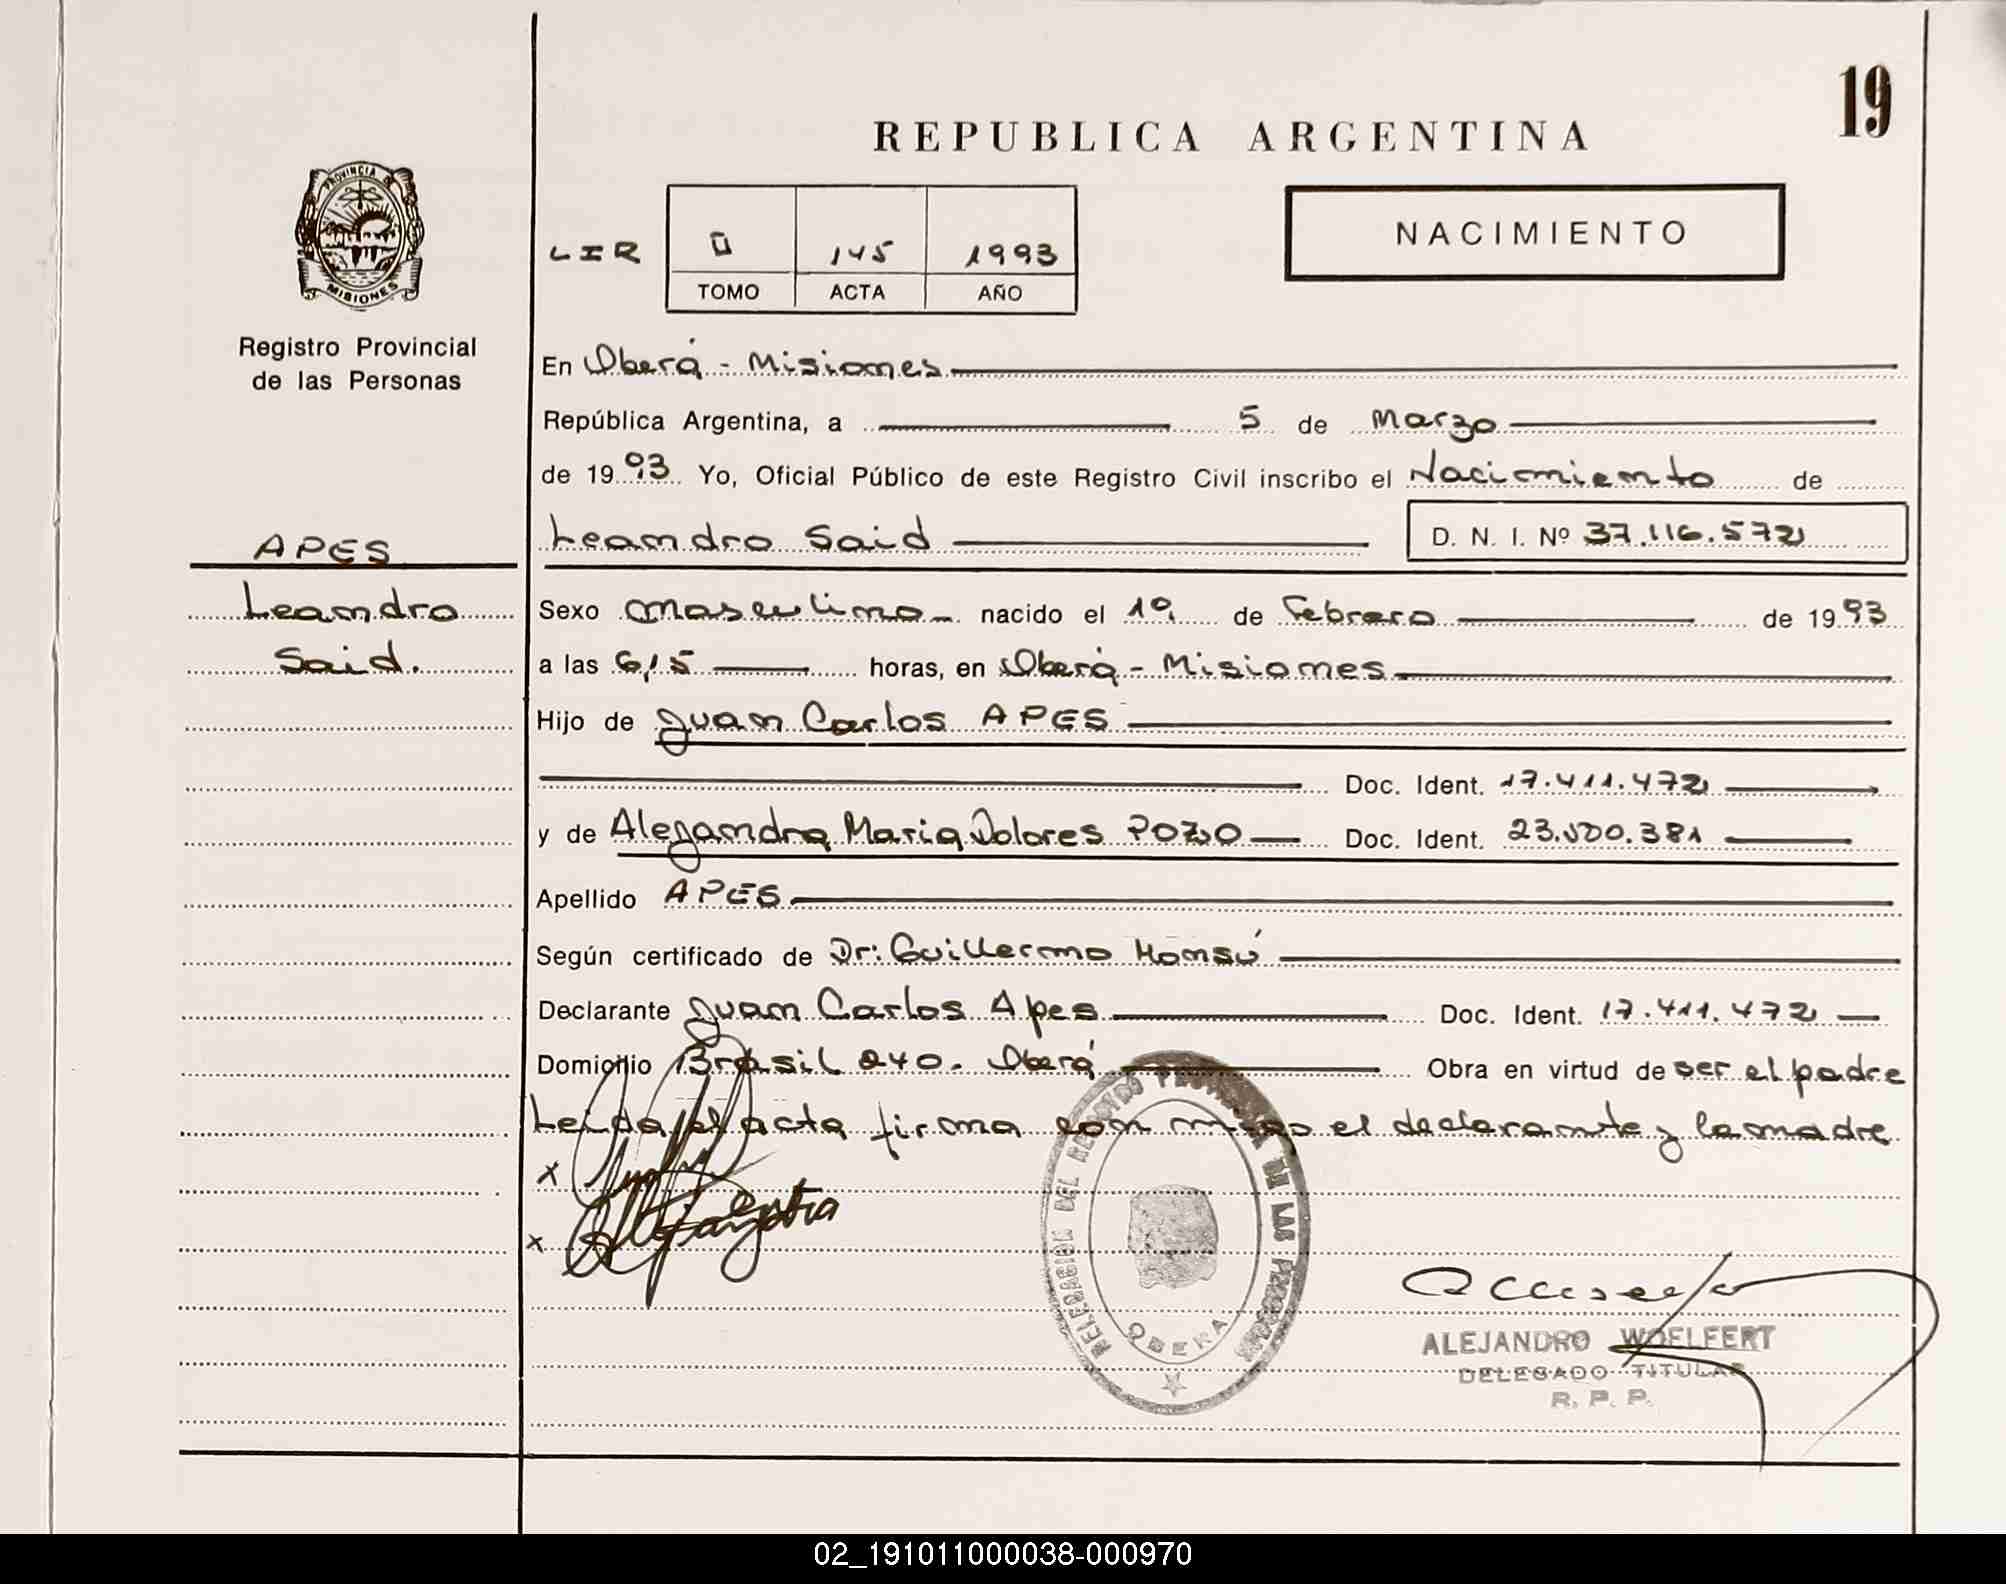 19
REPUBLICA ARGENTINA
PROVINCIA DE
MISIONES
Registro Provincial
de las Personas
LIR
145 1993
TOMO ACTA AÑO
NACIMIENTO
En Oberá - Misiones
República Argentina, a 5 de Marzo
de 1993 Yo, Oficial Público de este Registro Civil inscribo el Nacimiento de
Leandro Said D. N. I. Nº 37.116.572
APES
Leandro
Said.
Sexo Masculino nacido el 1º de Febrero de 1993
a las 6,15 horas, en Oberá - Misiones
Hijo de Juan Carlos APES
Doc. Ident. 17.411.472
y de Alejandra Maria Dolores POZO Doc. Ident. 23.500.381
Apellido APES
Según certificado de Dr: Guillermo
Declarante Juan Carlos Apes Doc. Ident. 17.411.472
Domicilio Brasil 240. Oberá Obra en virtud de ser el padre
Leida el acta firma con migo el declarante y la madre
x
x
DELEGACION DEL REGISTRO PROVINCIAL DE LAS PERSONAS
OBERA
ALEJANDRO WOELFERT
DELEGADO TITULAR
R. P. P.
02_191011000038-000970